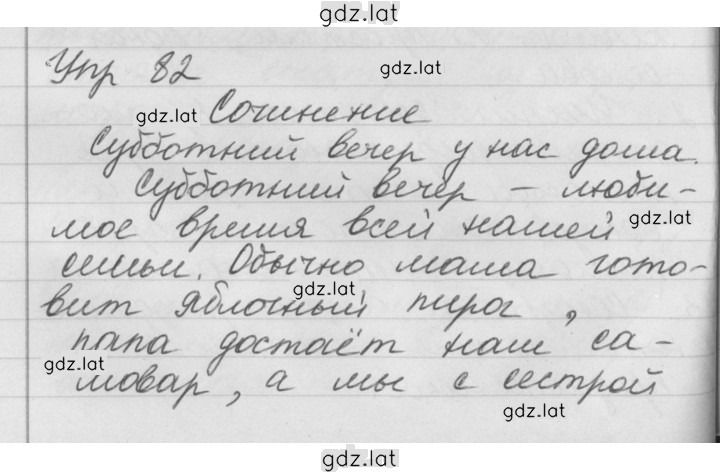 gdz.lat
Упр 82
gdz.lat
gdz.lat Сочинение
Субботний вечер у нас дома.
Субботний вечер – люби-
gdz.lat
мое время всей нашей
семьи. Обычно мама гото-
gdz.lat
вит яблочный пирог,
папа достаёт наш са-
gdz.lat
мовар, а мы с сестрой
gdz.lat
gdz.lat